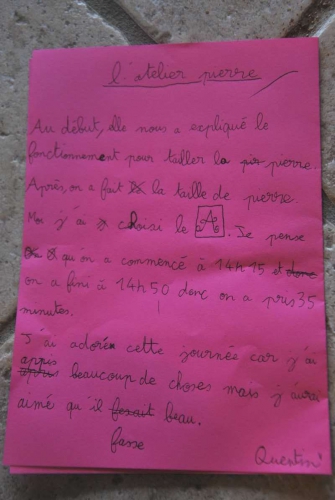 l'atelier pierre
Au début, elle nous a expliqué le
fonctionnement pour tailler la pier pierre.
Après, on a fait la taille de pierre.
Moi j'ai choisi le A. Je pense
qu'on a commencé à 14h15 et donc
on a fini à 14h50 donc on a pris 35
minutes.
J'ai adoré cette journée car j'ai
appris beaucoup de choses mais j'aurai
aimé qu'il fesait beau.
fasse
Quentin